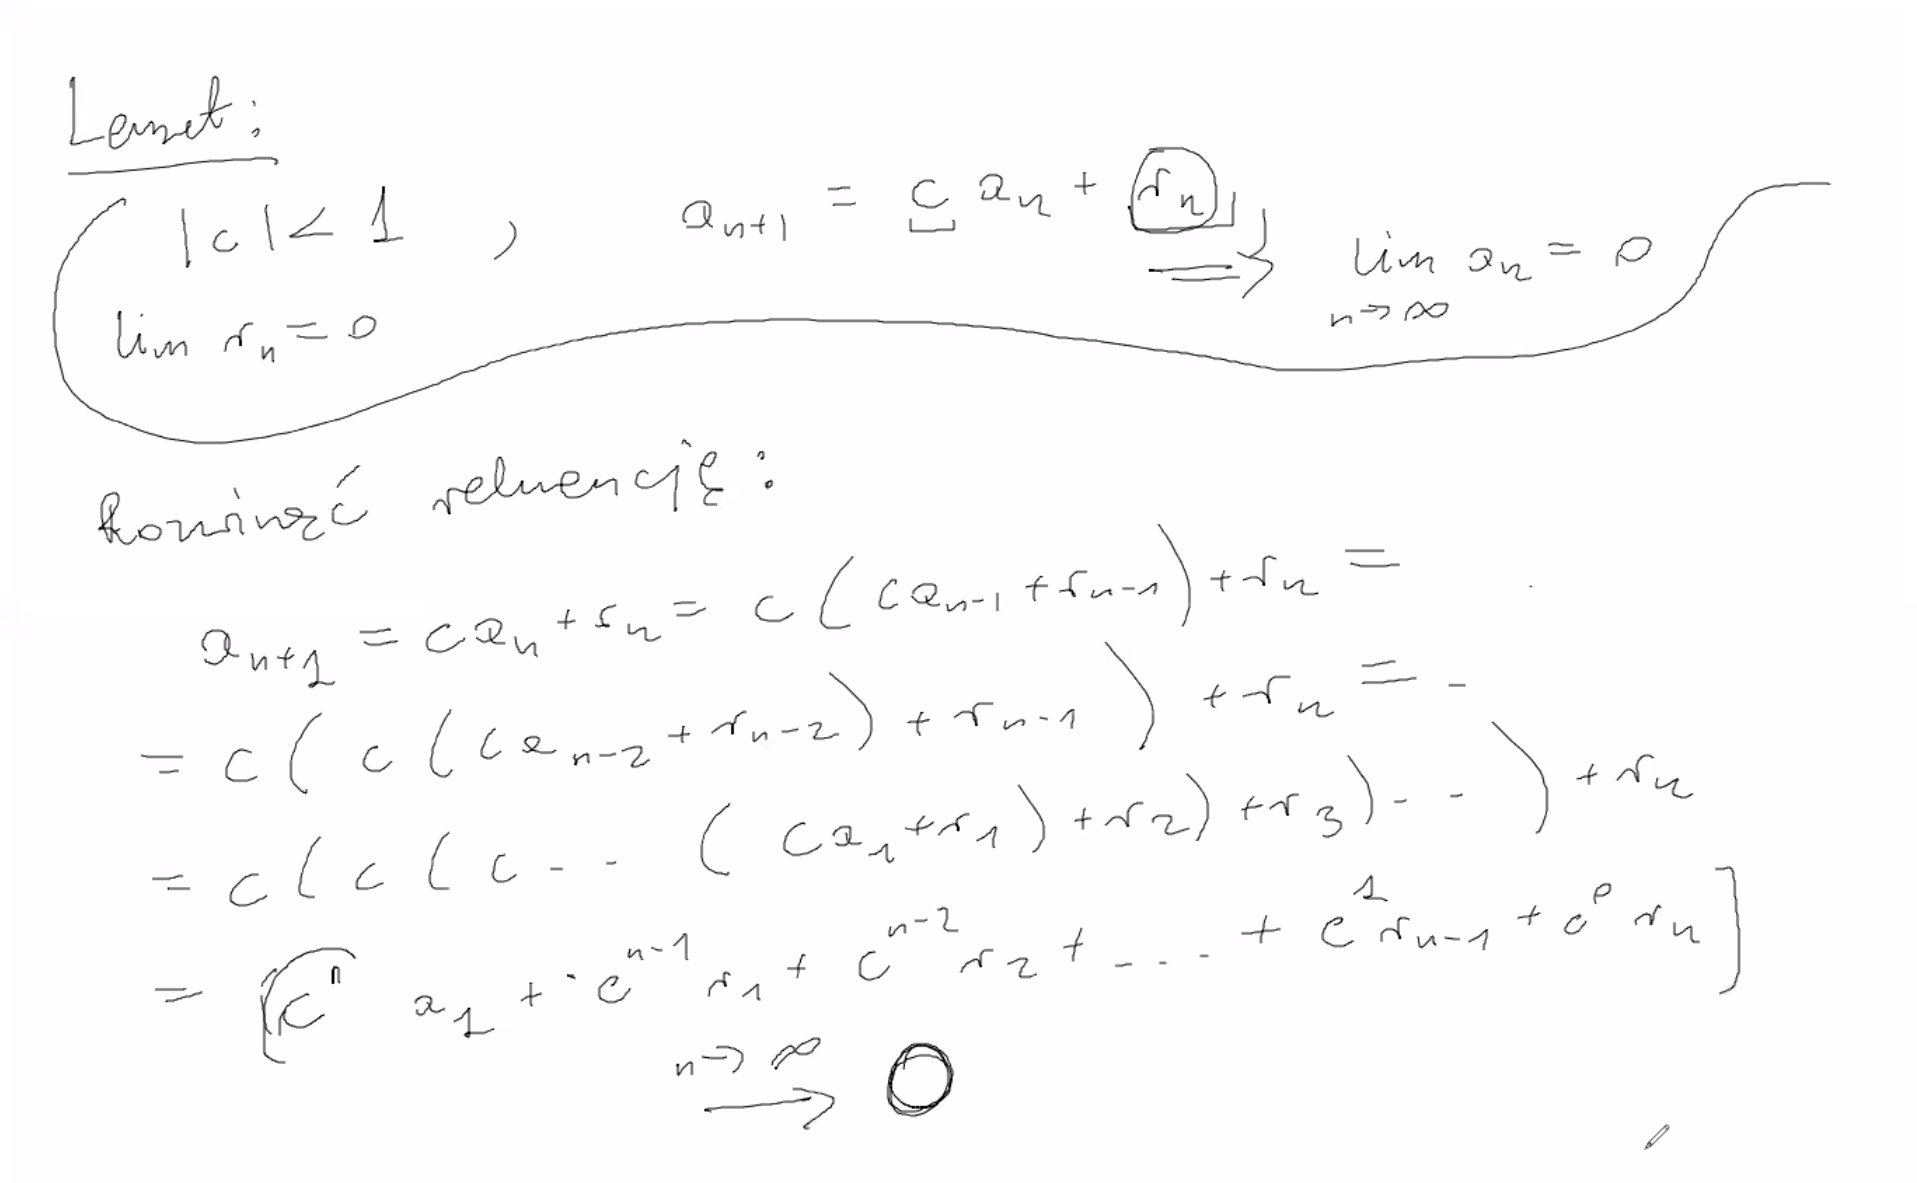 Lemat:
|c| < 1 , a_{n+1} = c a_n + r_n ⟹ lim_{n→∞} a_n = 0
lim r_n = 0
Rozwinąć rekurencję:
a_{n+1} = c a_n + r_n = c ( c a_{n-1} + r_{n-1} ) + r_n =
= c ( c ( c a_{n-2} + r_{n-2} ) + r_{n-1} ) + r_n = -
= c ( c ( c - - ( c a_1 + r_1 ) + r_2 ) + r_3 ) - - ) + r_n
= [ c^n a_1 + c^{n-1} r_1 + c^{n-2} r_2 + ... + c^1 r_{n-1} + c^0 r_n ]
n→∞
⟶ 0